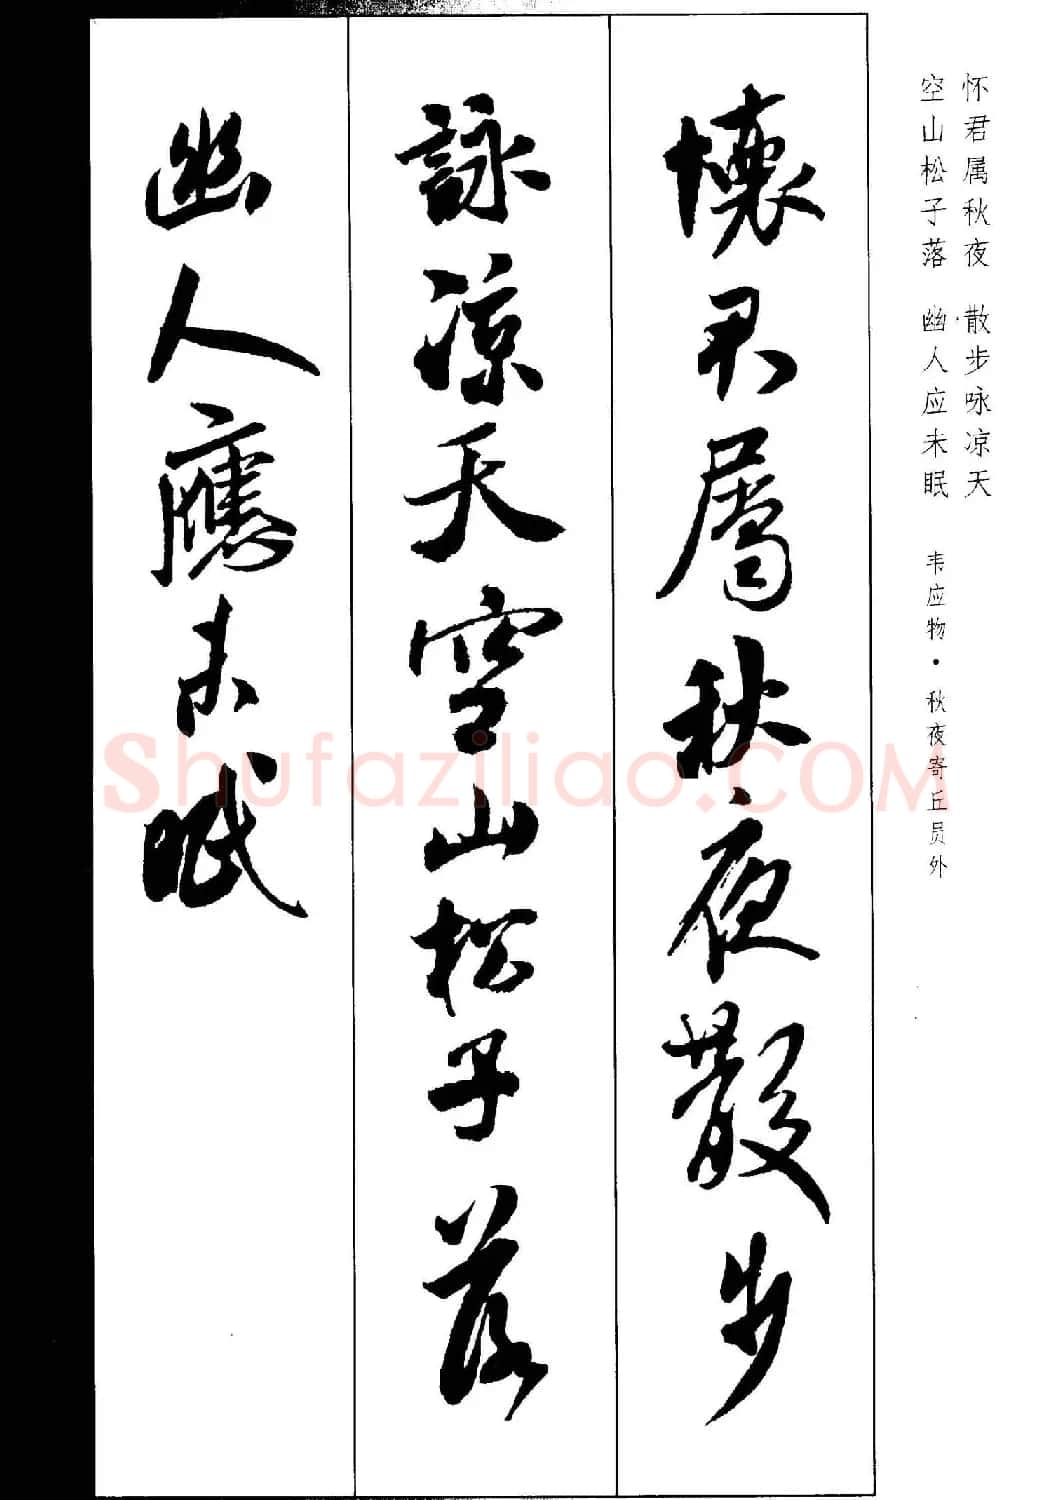 怀君属秋夜 散步咏凉天
空山松子落 幽人应未眠 韦应物·秋夜寄丘员外
懷君屬秋夜散步
詠涼天空山松子落
幽人應未眠
Shufaziliao.COM